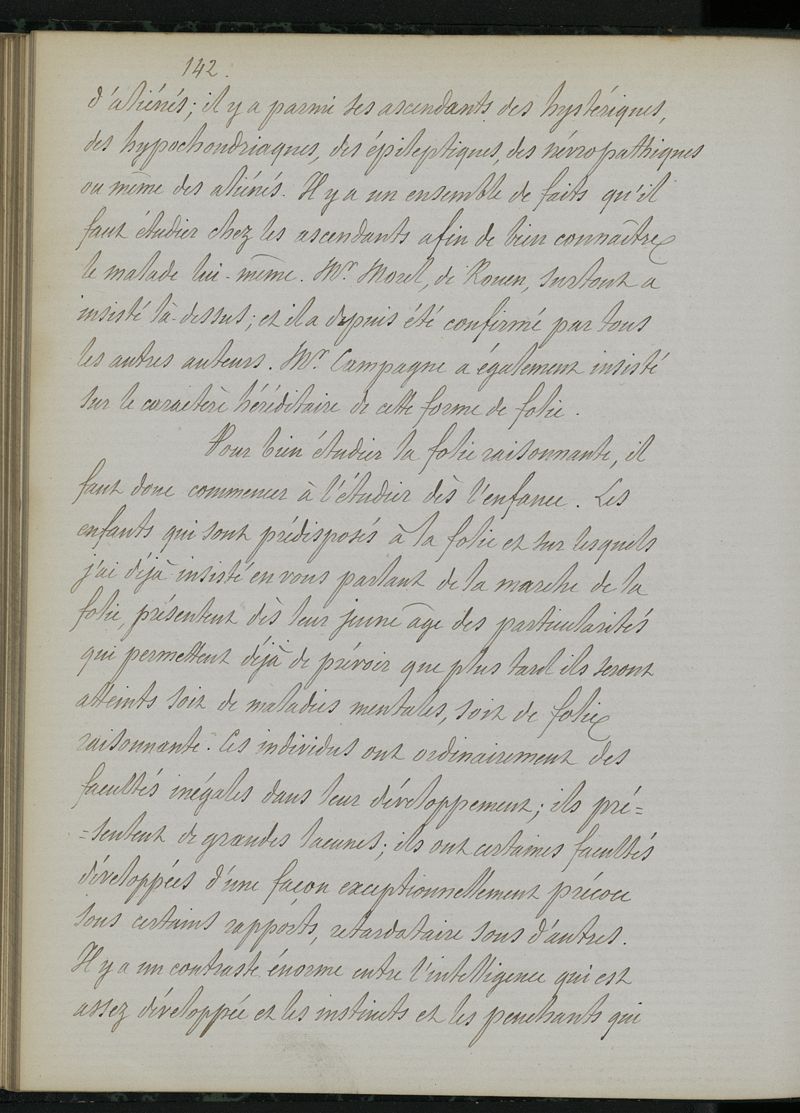 142.
d'aliénés; il y a parmi ses ascendants des hystériques,
des hypochondriaques, des épileptiques, des névropathiques
ou même des aliénés. Il y a un ensemble de faits qu'il
faut étudier chez les ascendants afin de bien connaître
le malade lui-même. Mr. Morel, de Rouen, surtout a
insisté là-dessus; et il a depuis été confirmé par tous
les autres auteurs. Mr. Campagne a également insisté
sur le caractère héréditaire de cette forme de folie.
Pour bien étudier la folie raisonnante, il
faut donc commencer à l'étudier dès l'enfance. Les
enfants qui sont prédisposés à la folie et sur lesquels
j'ai déjà insisté en vous parlant de la marche de la
folie, présentent dès leur jeune âge des particularités
qui permettent déjà de prévoir que plus tard ils seront
atteints soit de maladies mentales, soit de folie
raisonnante. Ces individus ont ordinairement des
facultés inégales dans leur développement; ils pré=
=sentent de grandes lacunes; ils ont certaines facultés
développées d'une façon exceptionnellement précoce
sous certains rapports, retardataire sous d'autres.
Il y a un contraste énorme entre l'intelligence qui est
assez développée et les instincts et les penchants qui